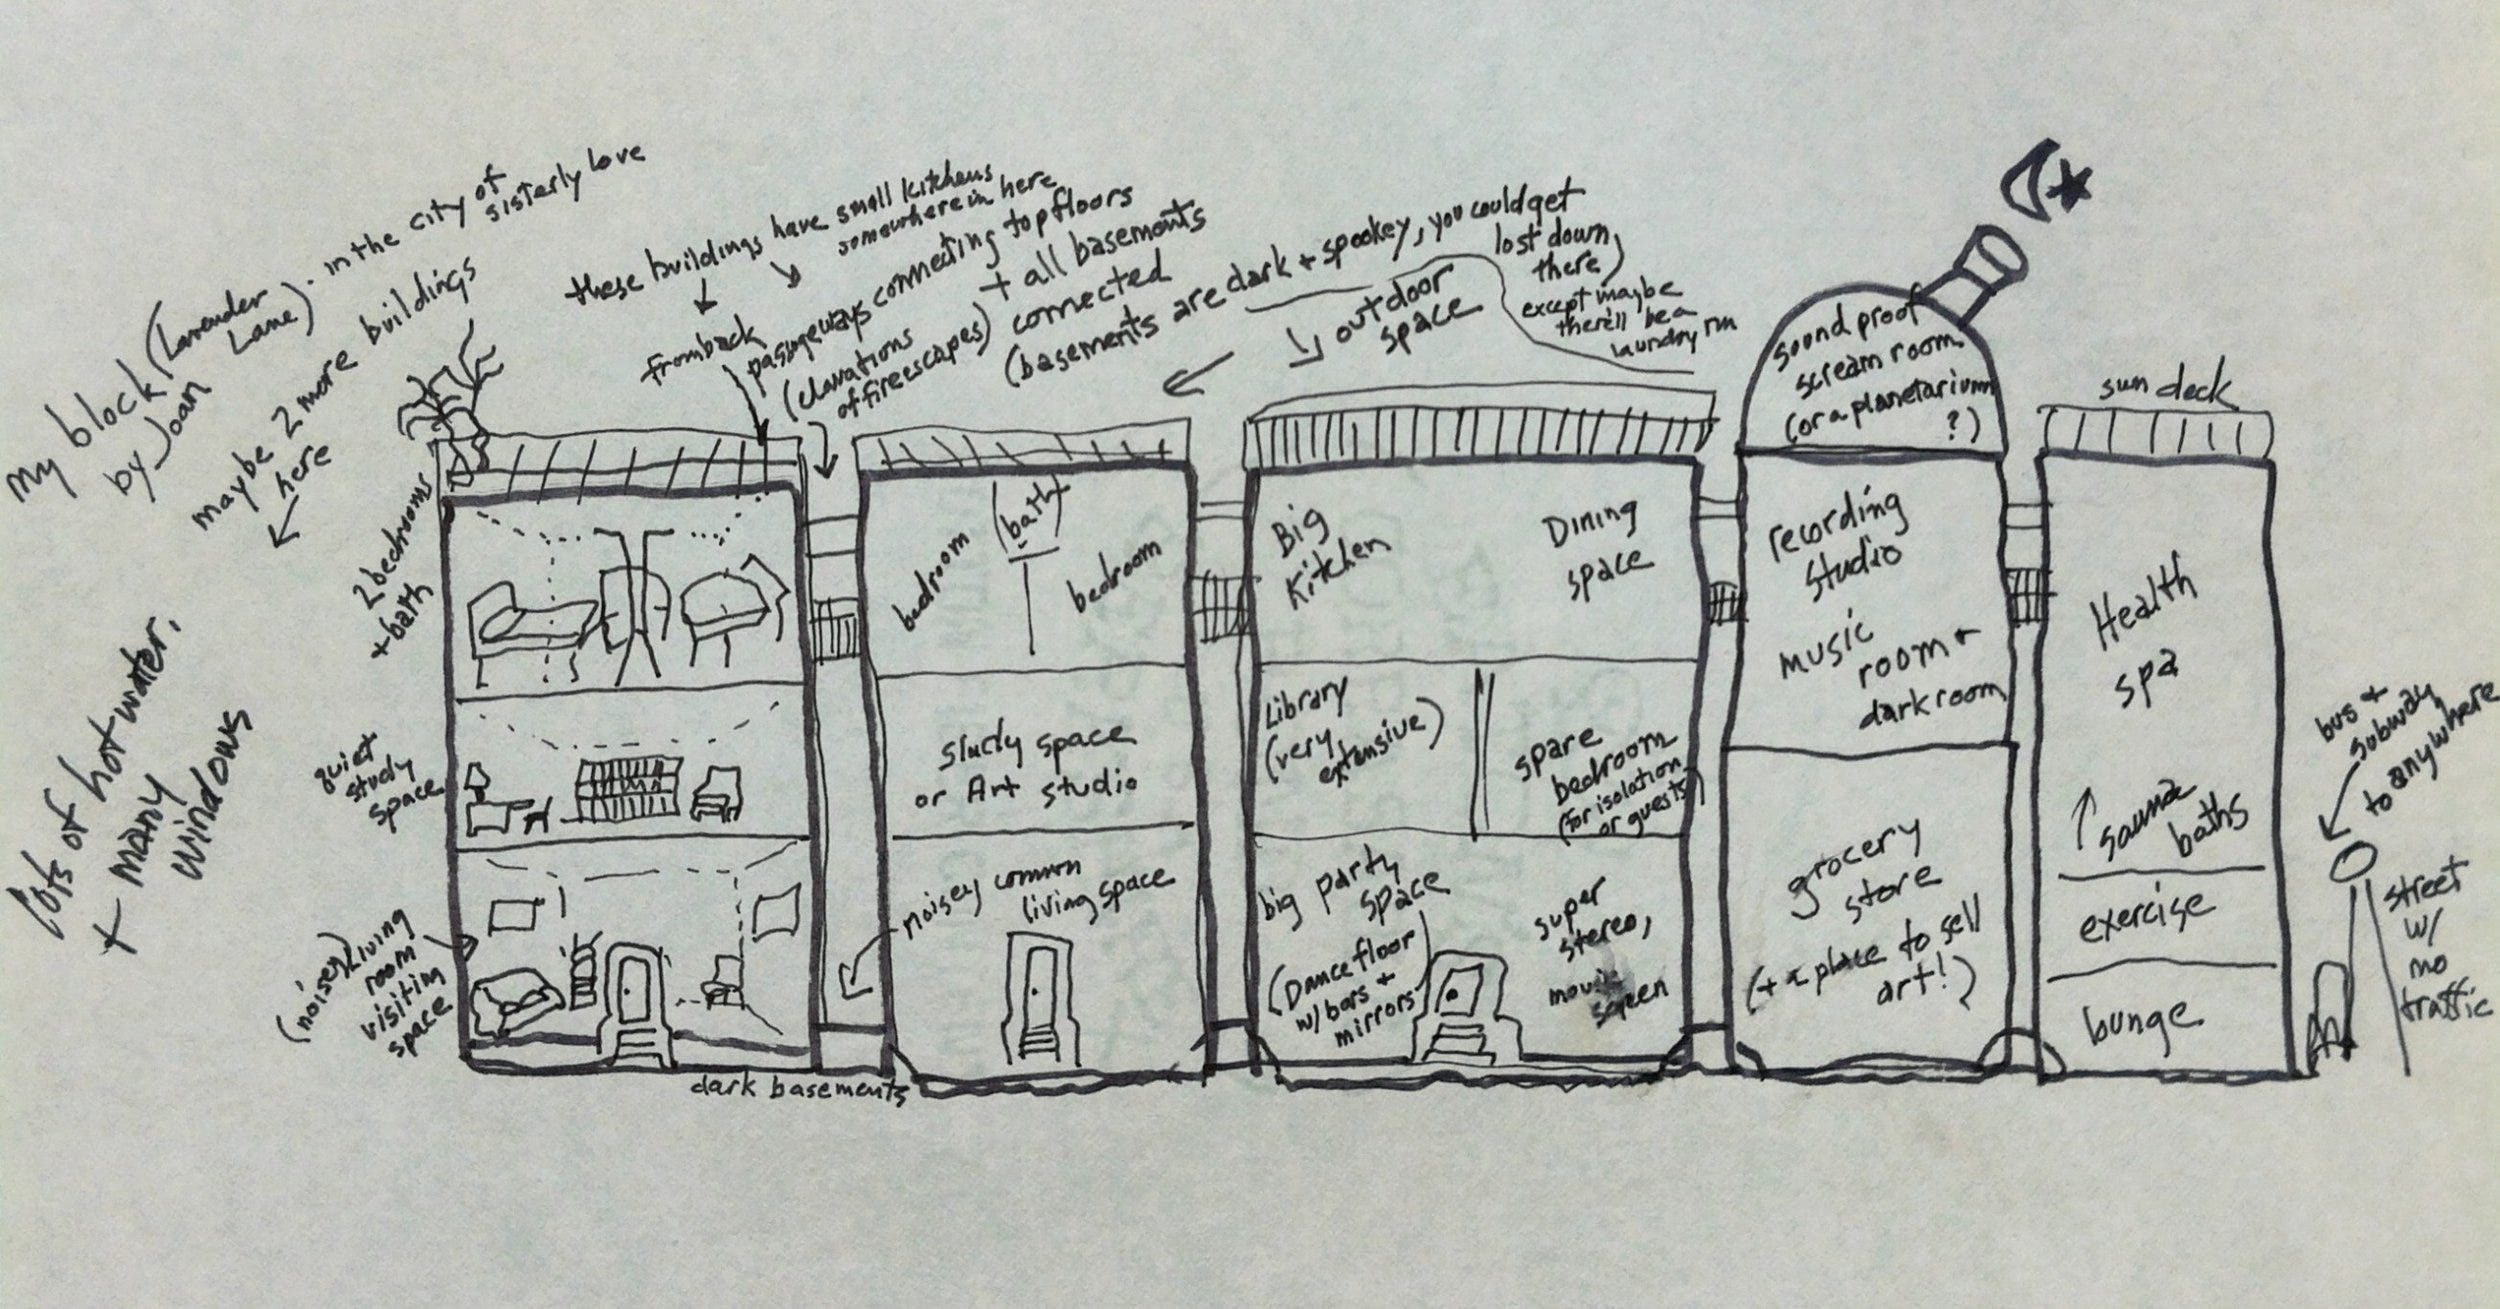 My block (Lavender
Lane). in the city of
sisterly love
by Joan
maybe 2 more buildings
here
these buildings have small kitchens
somewhere in here
from back
passageways connecting top floors
(elavations
of fireescapes)
+ all basements
connected
(basements are dark + spookey, you could get
lost down
there)
except maybe
there'll be a
laundry rm
outdoor
space
lots of hot water,
+ many
windows
2 bedrooms
+ bath
quiet
study
space
(noisey) Living
room
visiting
space
dark basements
bedroom
(bath)
bedroom
study space
or Art studio
noisey common
living space
Big
Kitchen
Dining
space
Library
(very
extensive)
spare
bedroom
(for isolation
or guests)
big party
space
(Dance floor
w/ bars +
mirrors)
super
stereo,
movie
screen
sound proof
scream room
(or a planetarium
?)
recording
studio
music
room +
darkroom
grocery
store
(+ a place to sell
art!)
sun deck
Health
spa
sauna
baths
exercise
lounge
bus +
subway
to anywhere
street
w/
no
traffic